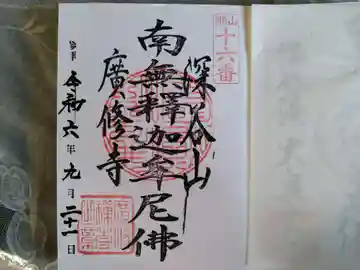 十六番
深谷山
南無釋迦牟尼佛
廣修寺
令和六年九月二十一日